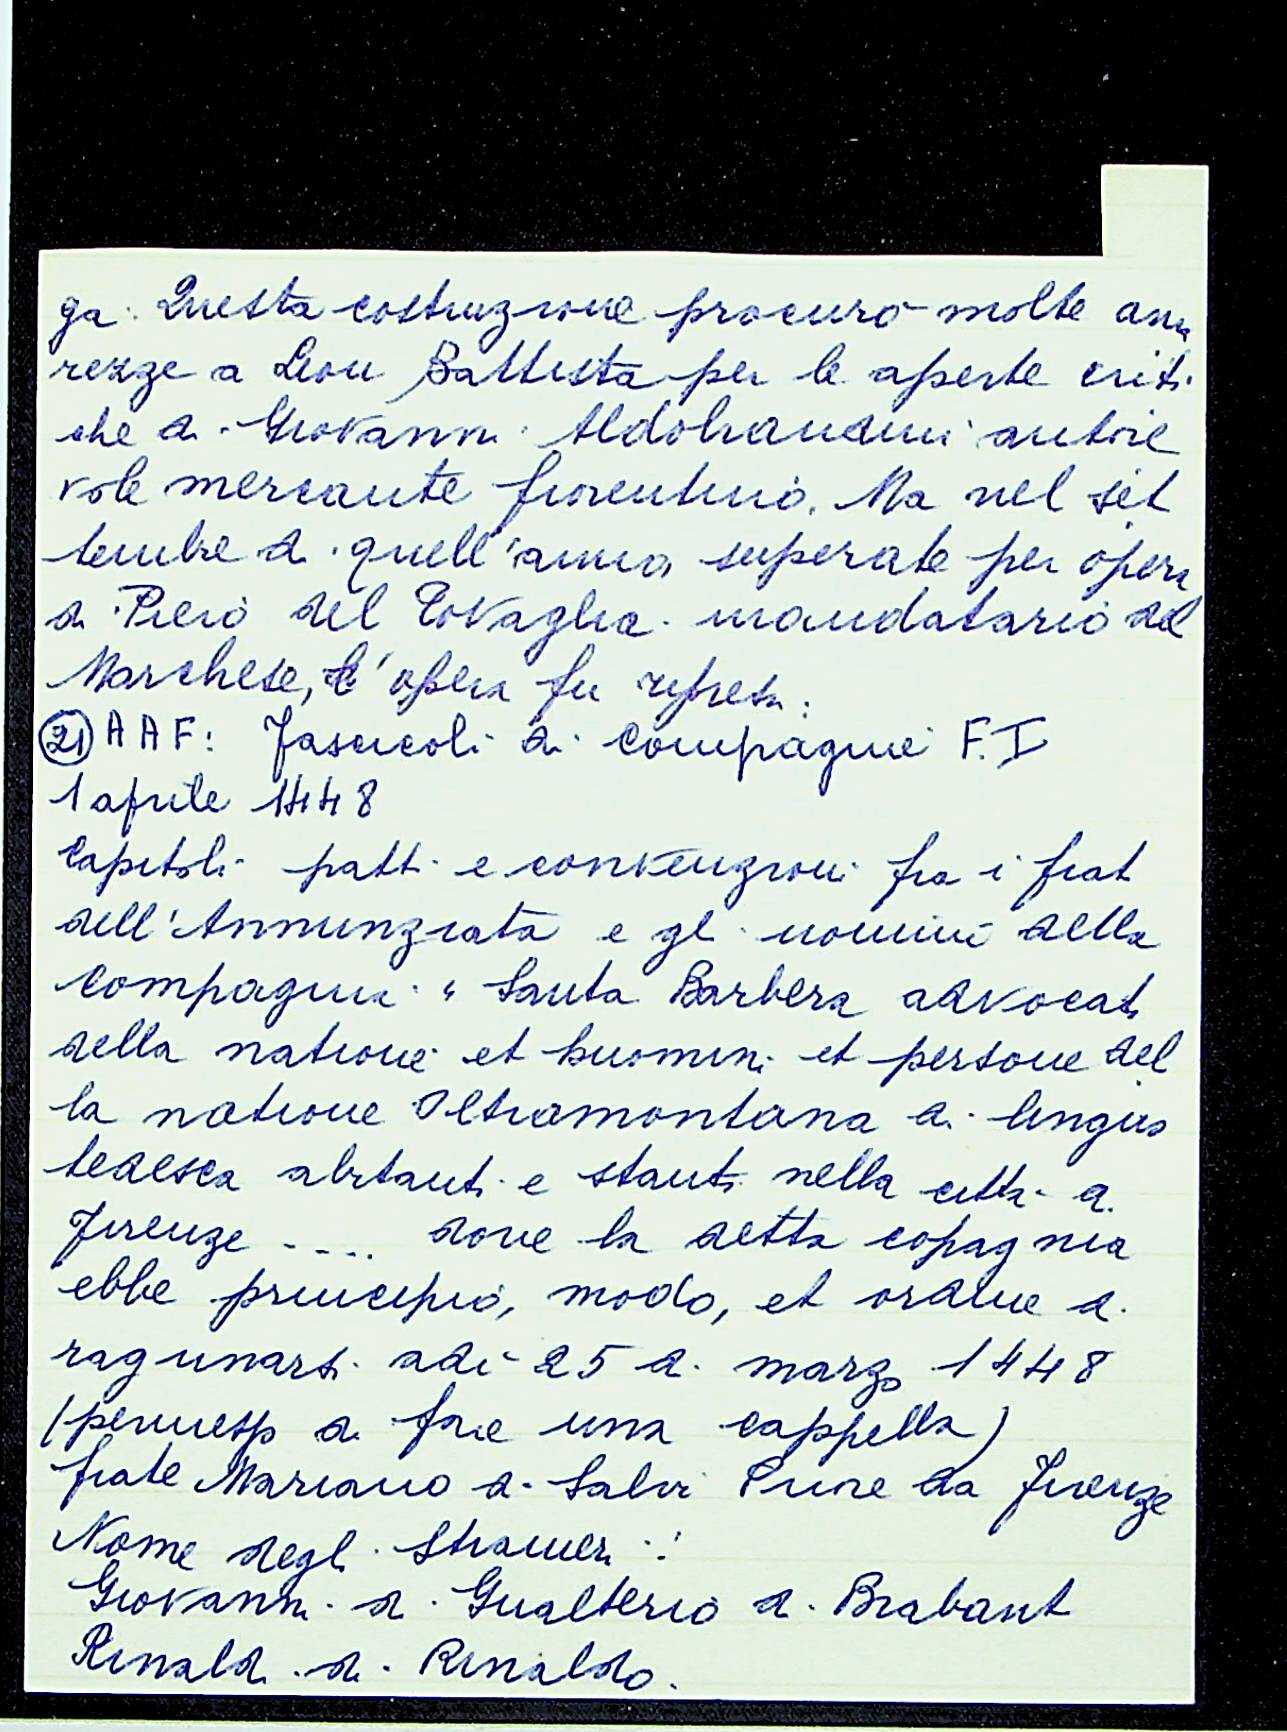 ga. Questa costruzione procurò molte ama
rezze a Leon Battista per le aperte criti
che di Giovanni Aldobrandini autore
vole mercante fiorentino. Ma nel set
tembre di quell'anno, superate per opera
di Piero del Tovaglia mandatario del
Marchese, l'opera fu ripresa.
(21) A A F: Fascicoli di Compagnie F. I
1 aprile 1448
Capitoli patti e convenzioni fra i frati
dell'Annunziata e gli uomini della
Compagnia "Santa Barbera advocati
della natione et huomini et persone del
la natione Oltramontana di lingua
tedesca abitanti e stanti nella città di
Firenze .... dove la detta copagnia
ebbe principio, modo, et ordine di
ragunarsi adì 25 di marzo 1448
(permesso di fare una cappella)
frate Mariano di Salvi Priore da Firenze
Nome degli stranieri :
Giovanni di Gualterio di Brabant
Rinaldi di Rinaldo.